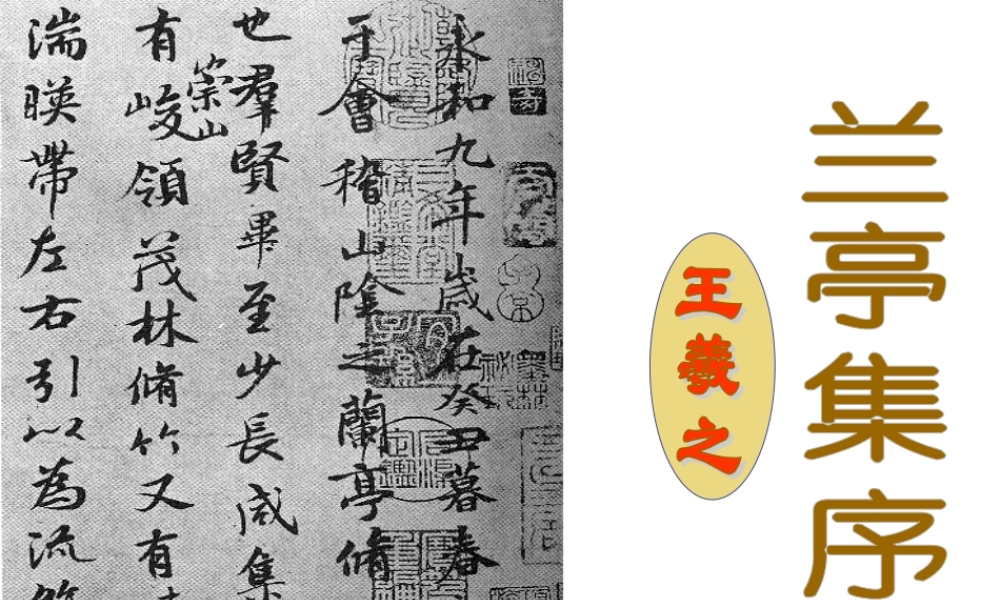 永和九年歲在癸丑暮春
于會稽山陰之蘭亭脩
也羣賢畢至少長咸集
有崇山峻領茂林脩竹又有
湍暎帶左右引以為流
兰亭集序
王羲之